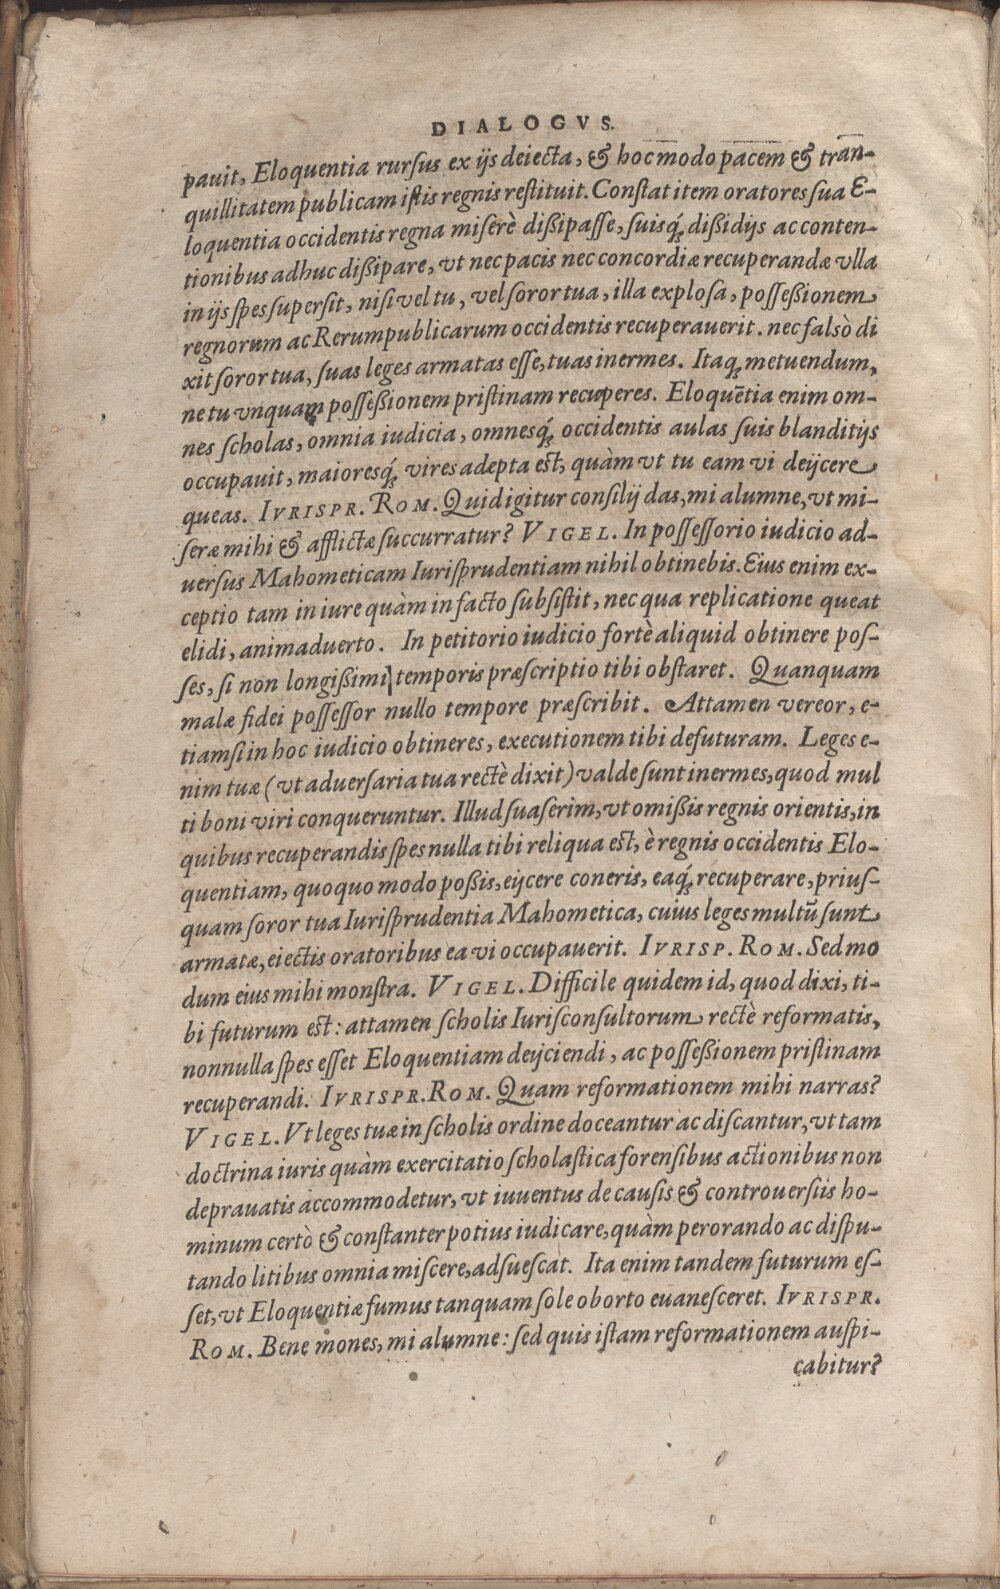 DIALOGVS.
pauit, Eloquentia rurſus ex ijs deiecta, & hoc modo pacem & tran-
quillitatem publicam iſtis regnis reſtituit. Conſtat item oratores ſua E-
loquentia occidentis regna miſerè dißipaſſe, ſuisq́; dißidijs ac conten-
tionibus adhuc dißipare, vt nec pacis nec concordiæ recuperandæ vlla
in ijs ſpes ſuperſit, niſi vel tu, vel ſoror tua, illa exploſa, poſſeßionem
regnorum ac Rerumpublicarum occidentis recuperauerit. nec falsò di
xit ſoror tua, ſuas leges armatas eſſe, tuas inermes. Itaq; metuendum,
ne tu vnquam poſſeßionem priſtinam recuperes. Eloquẽtia enim om-
nes ſcholas, omnia iudicia, omnesq́; occidentis aulas ſuis blanditijs
occupauit, maioresq́; vires adepta eſt, quàm vt tu eam vi deijcere
queas. IVRISPR. ROM. Quid igitur conſilij das, mi alumne, vt mi-
ſeræ mihi & afflictæ ſuccurratur? VIGEL. In poſſeſſorio iudicio ad-
uerſus Mahometicam Iuriſprudentiam nihil obtinebis. Eius enim ex-
ceptio tam in iure quàm in facto ſubſiſtit, nec qua replicatione queat
elidi, animaduerto. In petitorio iudicio fortè aliquid obtinere poſ-
ſes, ſi non longißimi temporis præſcriptio tibi obſtaret. Quanquam
malæ fidei poſſeſſor nullo tempore præſcribit. Attamen vereor, e-
tiamſi in hoc iudicio obtineres, executionem tibi defuturam. Leges e-
nim tuæ (vt aduerſaria tua rectè dixit) valde ſunt inermes, quod mul
ti boni viri conqueruntur. Illud ſuaſerim, vt omißis regnis orientis, in
quibus recuperandis ſpes nulla tibi reliqua eſt, è regnis occidentis Elo-
quentiam, quoquo modo poßis, eijcere coneris, eaq́; recuperare, priuſ-
quam ſoror tua Iuriſprudentia Mahometica, cuius leges multũ ſunt
armatæ, eiectis oratoribus ea vi occupauerit. IVRISP. ROM. Sed mo
dum eius mihi monſtra. VIGEL. Difficile quidem id, quod dixi, ti-
bi futurum eſt: attamen ſcholis Iuriſconſultorum rectè reformatis,
nonnulla ſpes eſſet Eloquentiam deijciendi, ac poſſeßionem priſtinam
recuperandi. IVRISPR. ROM. Quam reformationem mihi narras?
VIGEL. Vt leges tuæ in ſcholis ordine doceantur ac diſcantur, vt tam
doctrina iuris quàm exercitatio ſcholaſtica forenſibus actionibus non
deprauatis accommodetur, vt iuuentus de cauſis & controuerſiis ho-
minum certò & conſtanter potius iudicare, quàm perorando ac diſpu-
tando litibus omnia miſcere, adſueſcat. Ita enim tandem futurum eſ-
ſet, vt Eloquentiæ fumus tanquam ſole oborto euaneſceret. IVRISPR.
ROM. Bene mones, mi alumne: ſed quis iſtam reformationem auſpi-
cabitur?